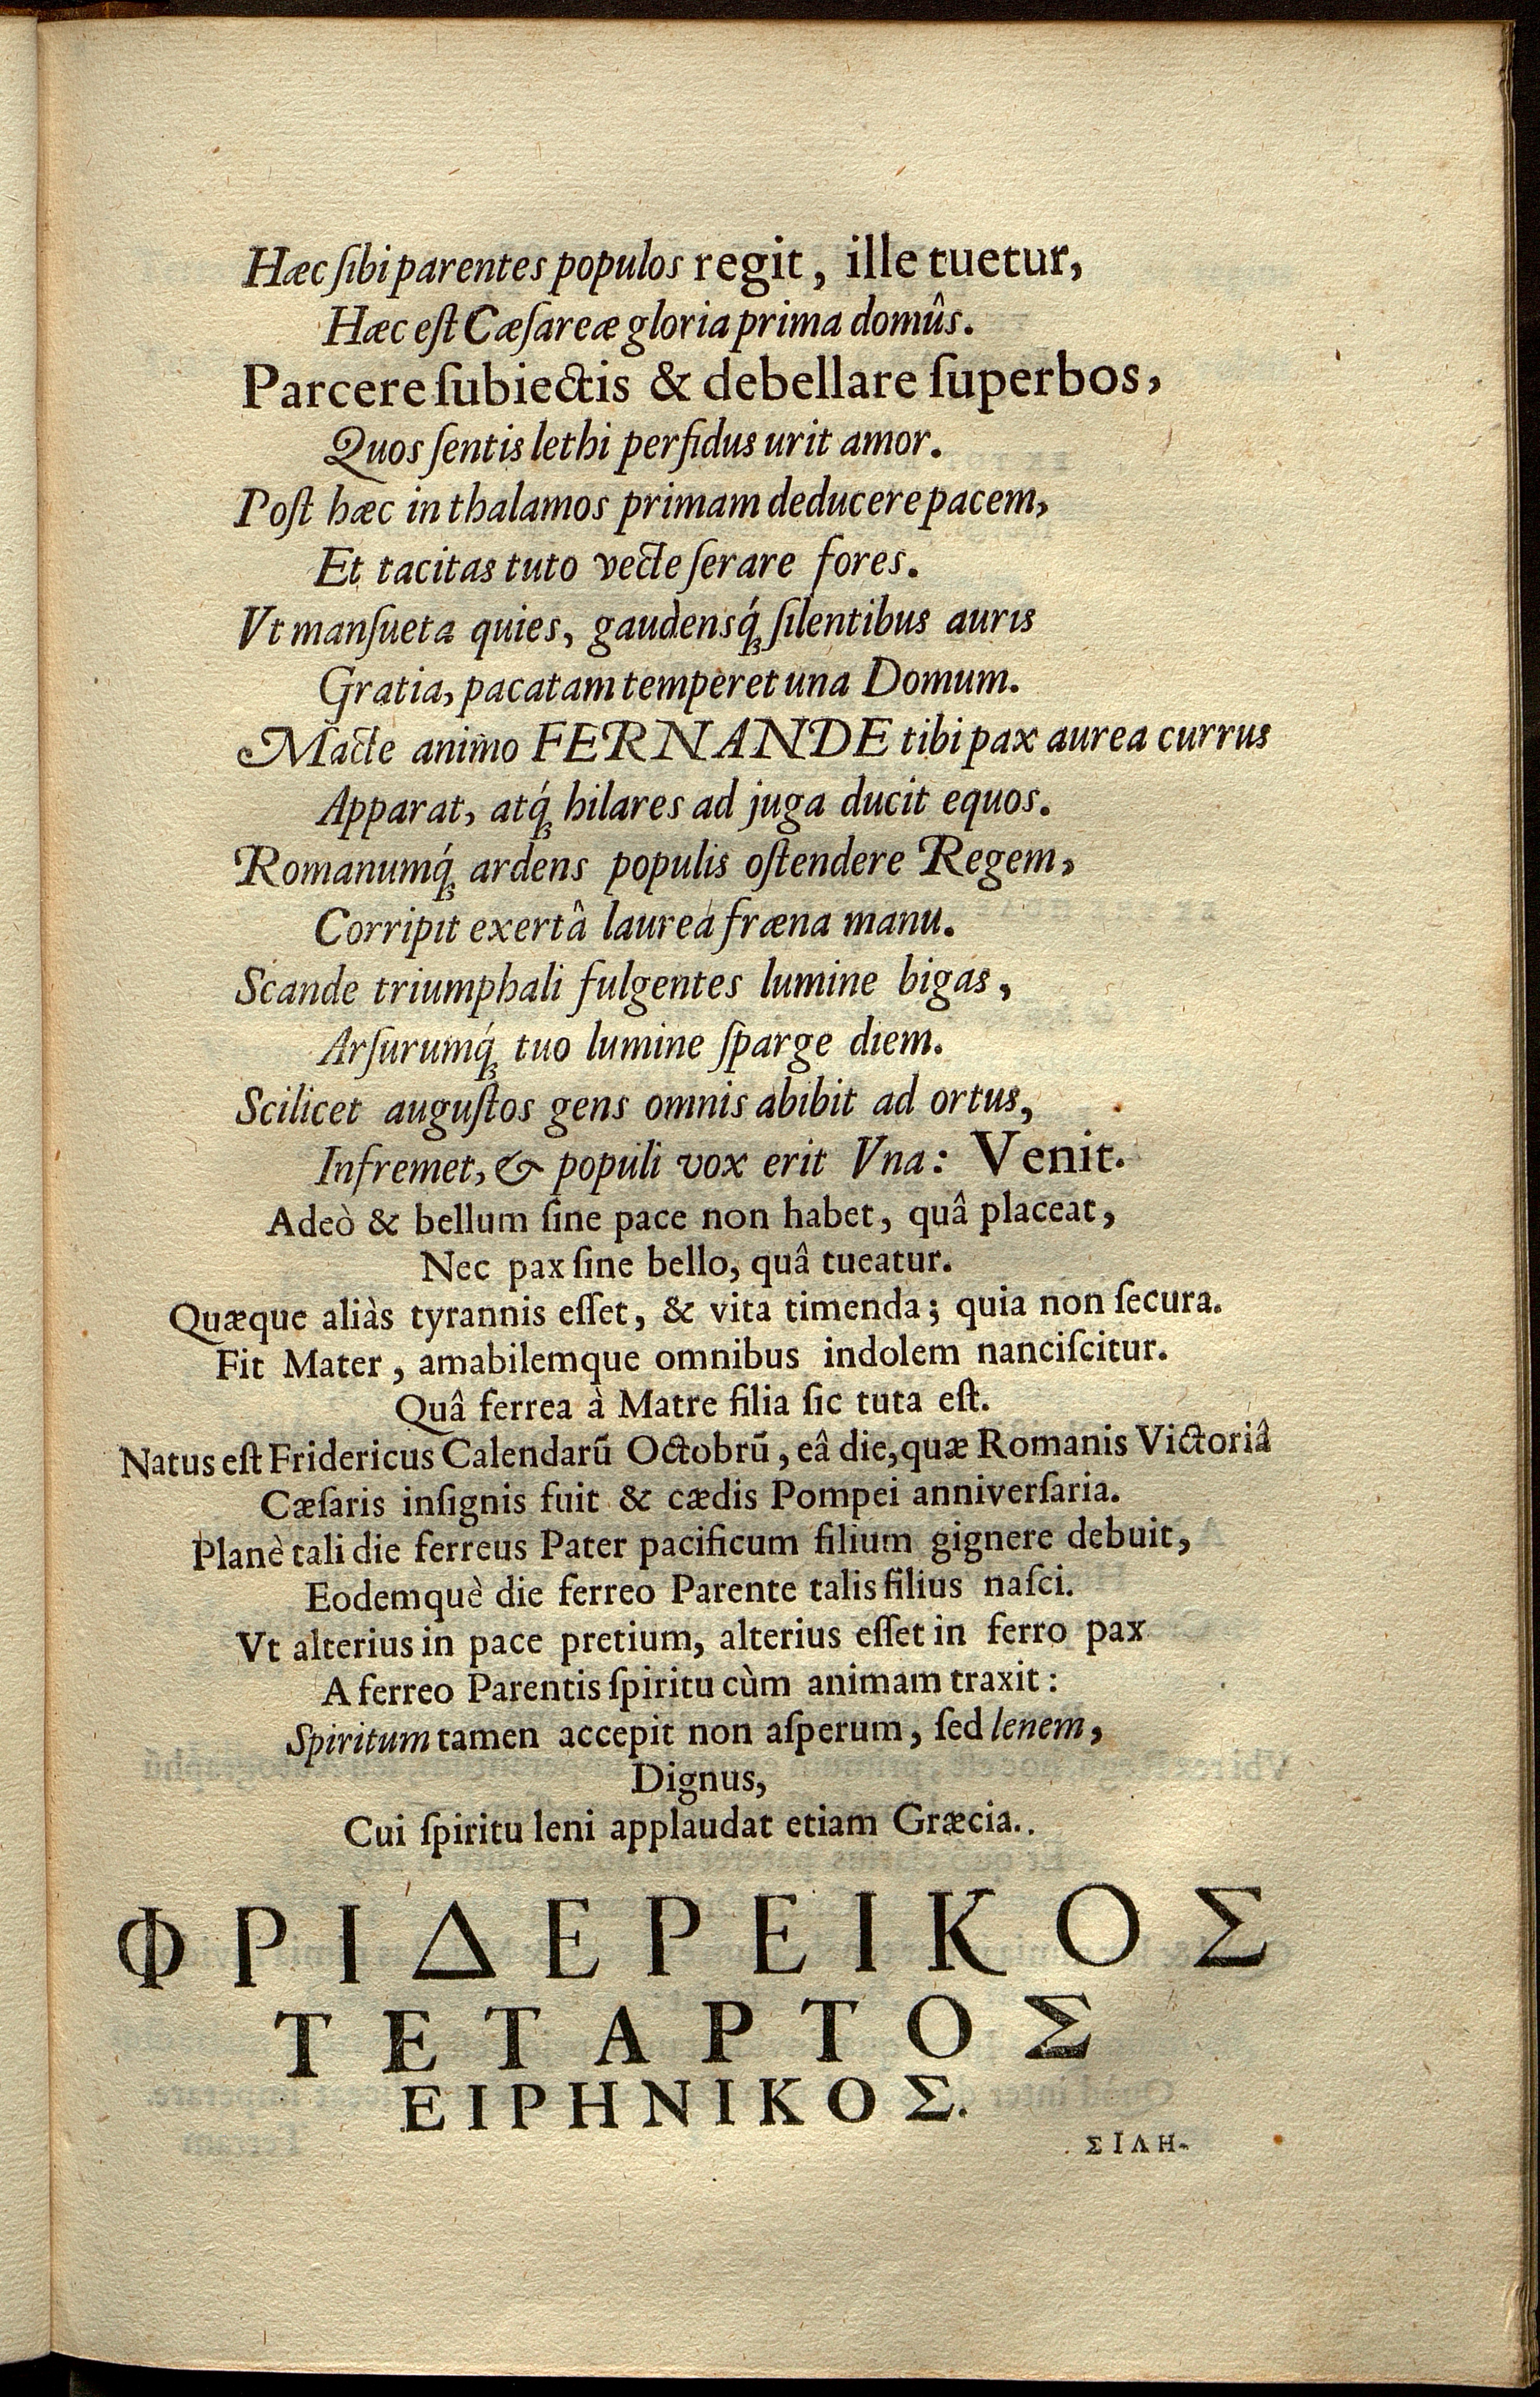 Hæc ſibi parentes populos regit, ille tuetur,
Hæc eſt Cæſareæ gloria prima domûs.
Parcere ſubiectis & debellare ſuperbos,
Quos ſentis lethi perfidus urit amor.
Poſt hæc in thalamos primam deducere pacem,
Et tacitas tuto vecte ſerare fores.
Vt manſueta quies, gaudensq́ꝫ ſilentibus auris
Gratia, pacatam temperet una Domum.
Macte animo FERNANDE tibi pax aurea currus
Apparat, atq́ꝫ hilares ad juga ducit equos.
Romanumq́ꝫ ardens populis oſtendere Regem,
Corripit exertâ laurea fræna manu.
Scande triumphali fulgentes lumine bigas,
Arſurumq́ꝫ tuo lumine ſparge diem.
Scilicet auguſtos gens omnis abibit ad ortus,
Infremet, & populi vox erit Vna: Venit.
Adeò & bellum ſine pace non habet, quâ placeat,
Nec pax ſine bello, quâ tueatur.
Quæque aliàs tyrannis eſſet, & vita timenda; quia non ſecura.
Fit Mater, amabilemque omnibus indolem nanciſcitur.
Quâ ferrea à Matre filia ſic tuta eſt.
Natus eſt Fridericus Calendarū Octobrū, eâ die, quæ Romanis Victoriâ
Cæſaris inſignis fuit & cædis Pompei anniverſaria.
Planè tali die ferreus Pater pacificum filium gignere debuit,
Eodemquè die ferreo Parente talis filius naſci.
Vt alterius in pace pretium, alterius eſſet in ferro pax
A ferreo Parentis ſpiritu cùm animam traxit:
Spiritum tamen accepit non aſperum, ſed lenem,
Dignus,
Cui ſpiritu leni applaudat etiam Græcia..
ΦΡΙΔΕΡΕΙΚΟΣ
ΤΕΤΑΡΤΟΣ
ΕΙΡΗΝΙΚΟΣ.
ΣΙΔΗ-